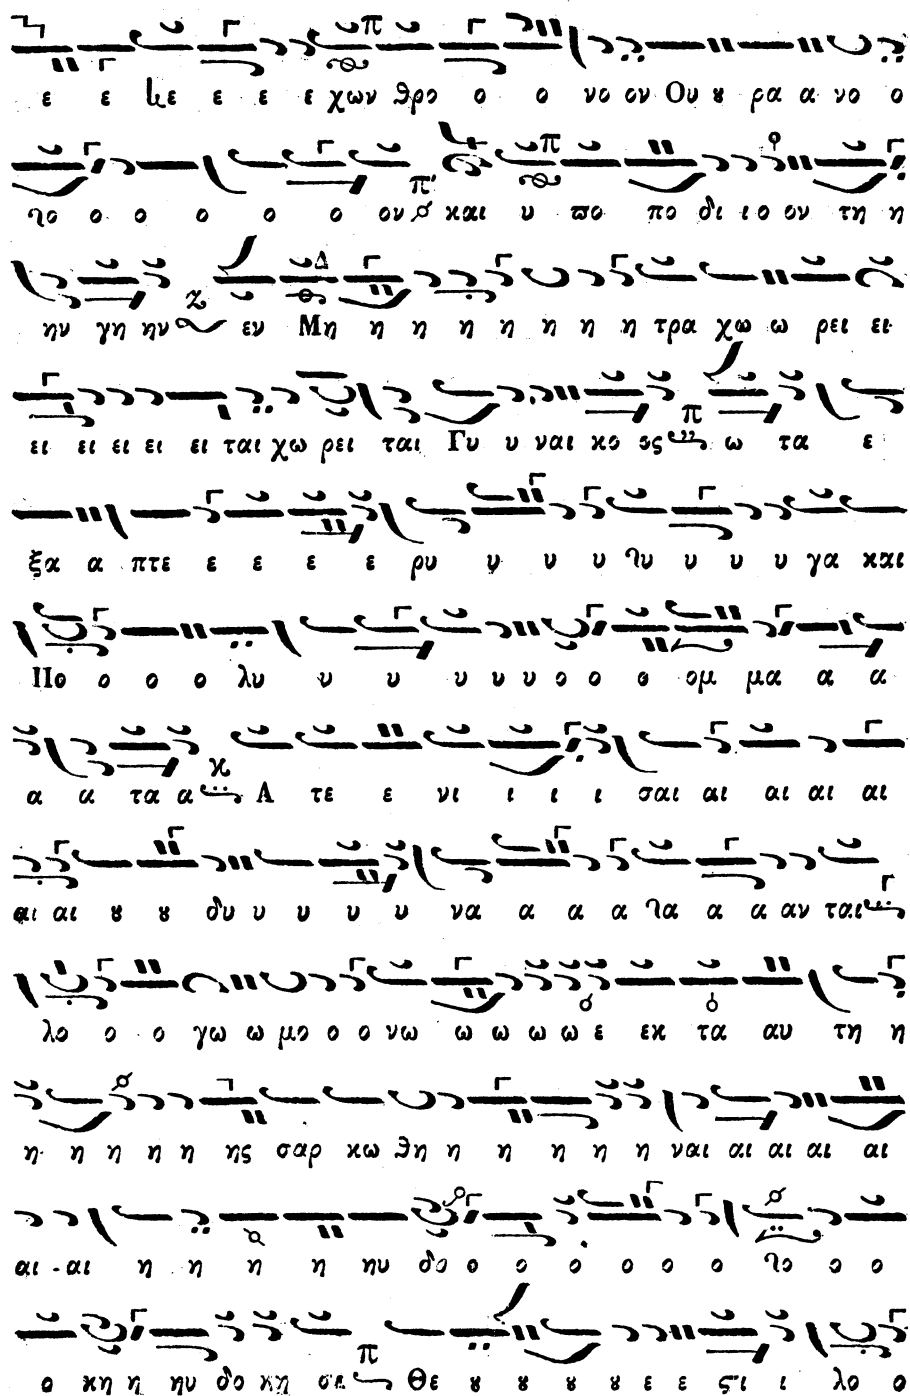 ε ε κε ε ε ε χων θρο ο ο νο ον Ου ȣ ρα α νο ο
το ο ο ο ο ο ον και υ πο πο δι ι ο ον τη η
ην γη ην εν Μη η η η η η η η τρα χω ω ρει ει
ει ει ει ει ει ται χω ρει ται Γυ υ ναι κο ος ω τα ε
ξα α πτε ε ε ε ε ρυ υ υ υ τυ υ υ υ γα και
Πο ο ο ο λυ υ υ υ υ υ ο ο ο ομ μα α α
α α τα α Α τε ε νι ι ι ι σαι αι αι αι αι
αι αι ȣ ȣ δυ υ υ υ υ να α α α τα α α αν ται
λο ο ο γω ω μο ο ο νω ω ω ω ω ε εκ τα αυ τη η
η η η η η ης σαρ κω θη η η η η η ναι αι αι αι αι
αι αι η η η η ηυ δο ο ο ο ο ο ο το ο ο
ο κη η ηυ δο κη σε Θε ȣ ȣ ȣ ȣ ε ε ϛι ι λο ο